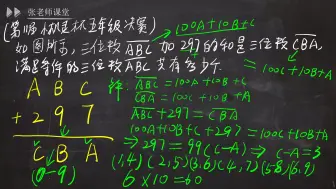 张老师课堂
100A+10B+C
(第11届希望杯五年级决赛)
如图所示,三位数ABC加297的和是三位数CBA,
满足条件的三位数ABC共有多少个
=100C+10B+A
A B C
+ 2 9 7
C B A
(0-9)
ABC = 100A+10B+C
CBA = 100C+10B+A
ABC+297 = CBA
100A+10B+C+297 = 100C+10B+A
⇒ 297 = 99(C-A) ⇒ C-A=3
(1,4)(2,5)(3,6)(4,7)(5,8)(6,9)
6×10=60